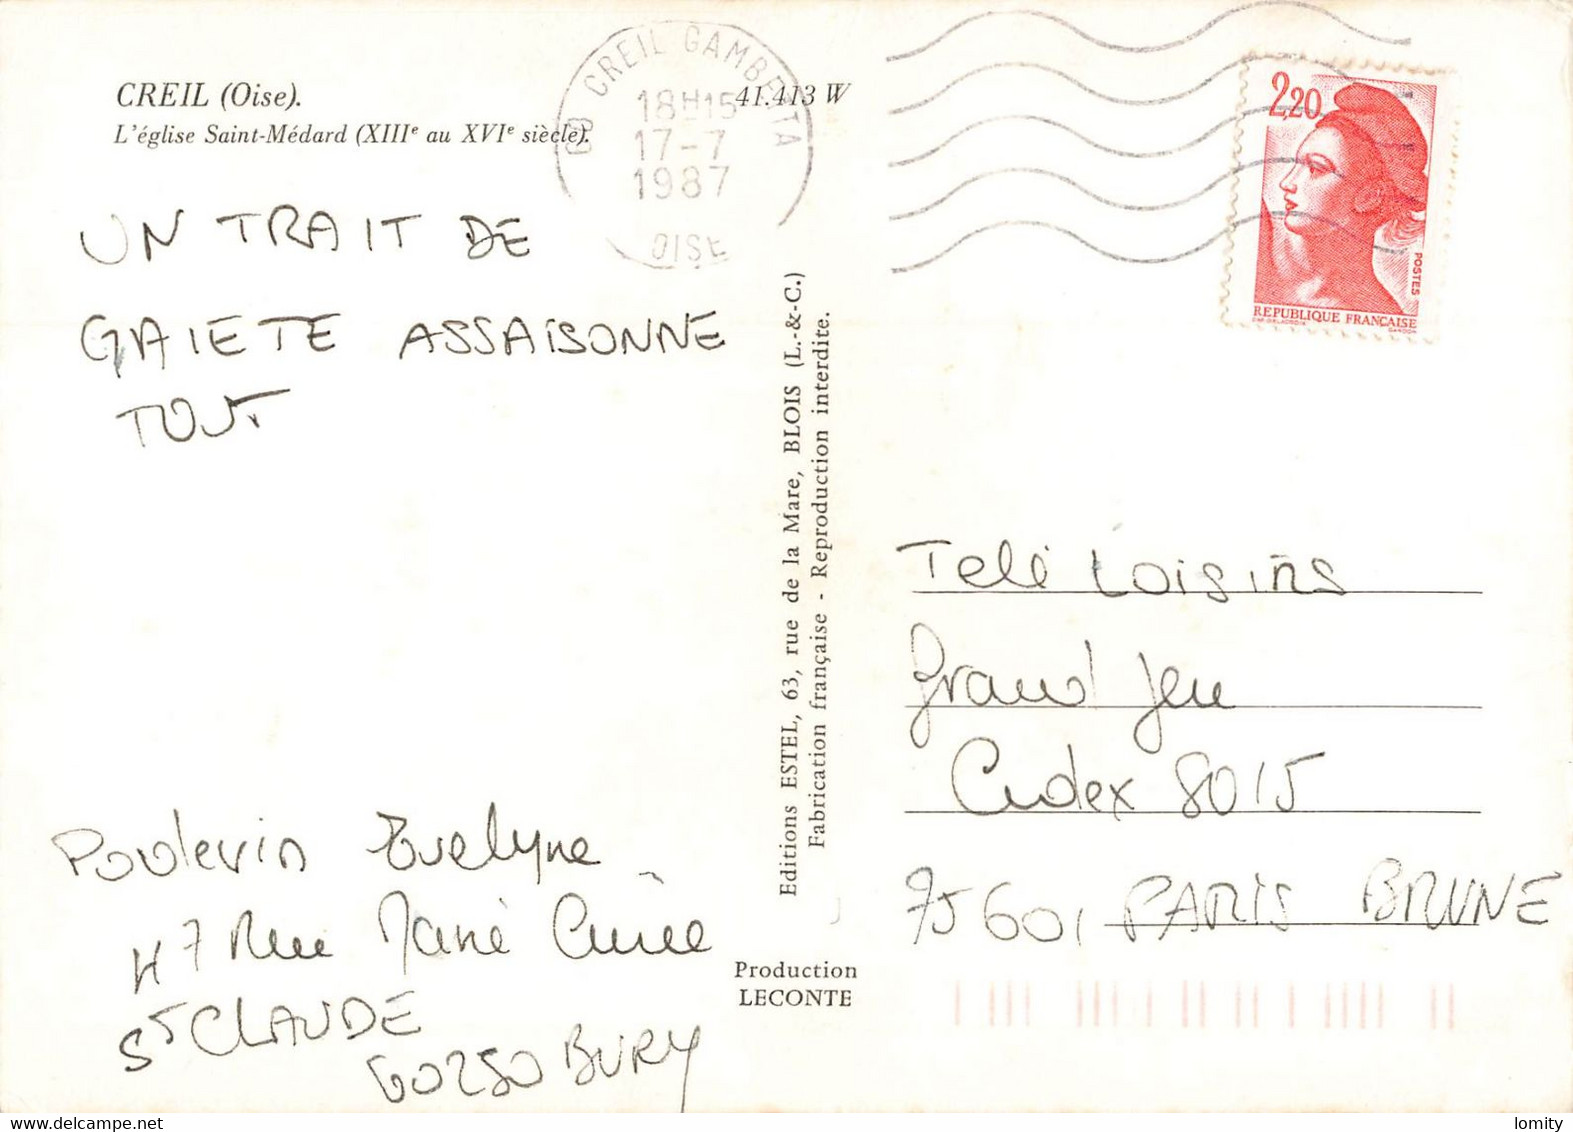 CREIL (Oise).
L'église Saint-Médard (XIIIe au XVIe siècle).
41.413 W
60 CREIL GAMBETTA
18H15
17-7
1987
OISE
2,20
POSTES
REPUBLIQUE FRANÇAISE
UN TRAIT DE
GAIETE ASSAISONNE
TOUT
Poulevin Evelyne
47 Rue Marie Curie
St CLAUDE
60250 BURY
Editions ESTEL, 63, rue de la Mare, BLOIS (L.-&-C.)
Fabrication française - Reproduction interdite.
Production
LECONTE
Telé Loisirs
Grand Jeu
Cedex 8015
75601 PARIS BRUNE
lomity